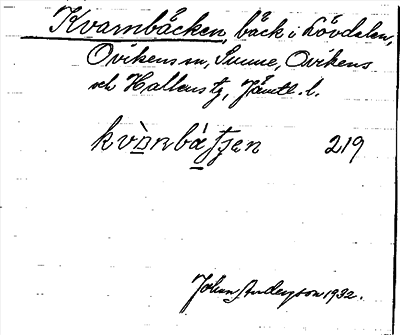 Kvarnbäcken, bäck i Lövdalen,
Oviken sn, Sunne, Ovikens
och Hallens tg, Jämtl. l.
kvànbátʃen 219
Johan Anderson 1932.